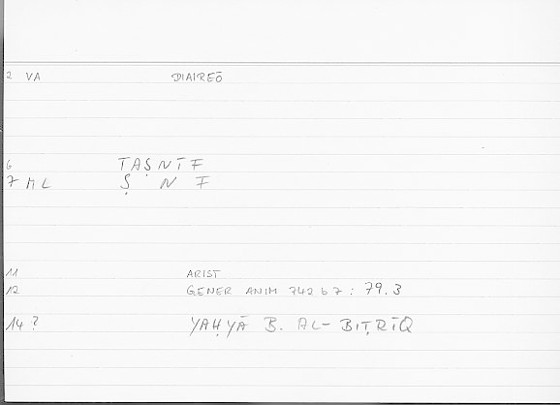 2 VA DIAIREŌ
6 TAṢNĪF
7 ML Ṣ N F
11 ARIST
12 GENER ANIM 742 b 7 : 79.3
14 ? YAḤYĀ B. AL-BIṬRĪQ